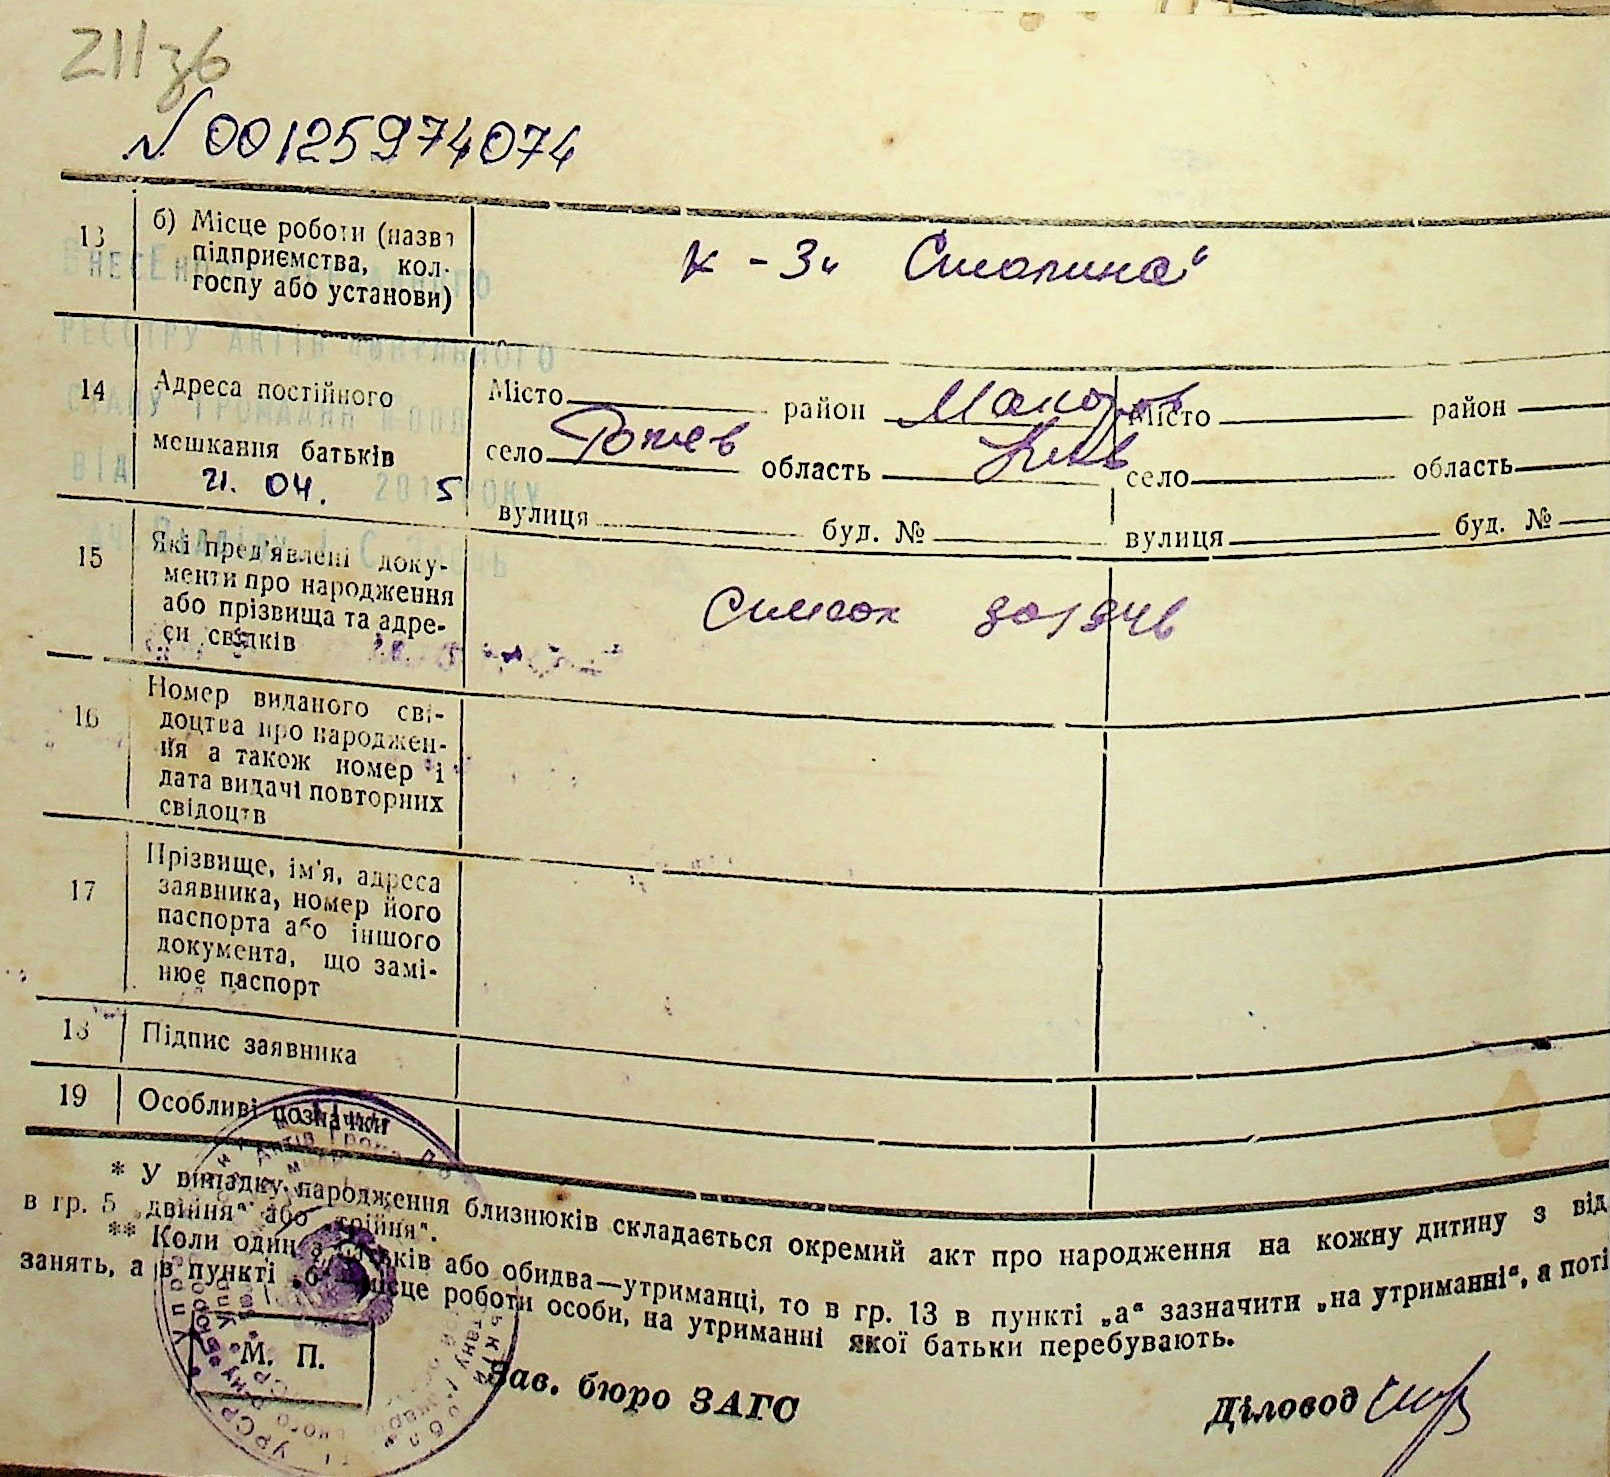 № 00125974074
13 б) Місце роботи (назва
підприємства, кол-
госпу або установи)
к-з „Сталіна“
14 Адреса постійного
мешкання батьків
Місто район Макарів
село Рожев область Київ
вулиця буд. №
Місто район
село область
вулиця буд. №
ВНЕСЕНО ДО
РЕЄСТРУ АКТІВ ЦИВІЛЬНОГО
СТАНУ ГРОМАДЯН
ВІД 21. 04. 2015 РОКУ
15 Які пред'явлені доку-
менти про народження
або прізвища та адре-
си свідків
Список
16 Номер виданого сві-
доцтва про народжен-
ня а також номер і
дата видачі повторних
свідоцтв
17 Прізвище, ім'я, адреса
заявника, номер його
паспорта або іншого
документа, що замі-
нює паспорт
18 Підпис заявника
19 Особливі позначки
* У випадку народження близнюків складається окремий акт про народження на кожну дитину з від
в гр. 5 „двійня“ або „трійня“.
** Коли один з батьків або обидва—утриманці, то в гр. 13 в пункті „а“ зазначити „на утриманні“, а поті
занять, а в пункті „б“ місце роботи особи, на утриманні якої батьки перебувають.
М. П.
Зав. бюро ЗАГС
Діловод